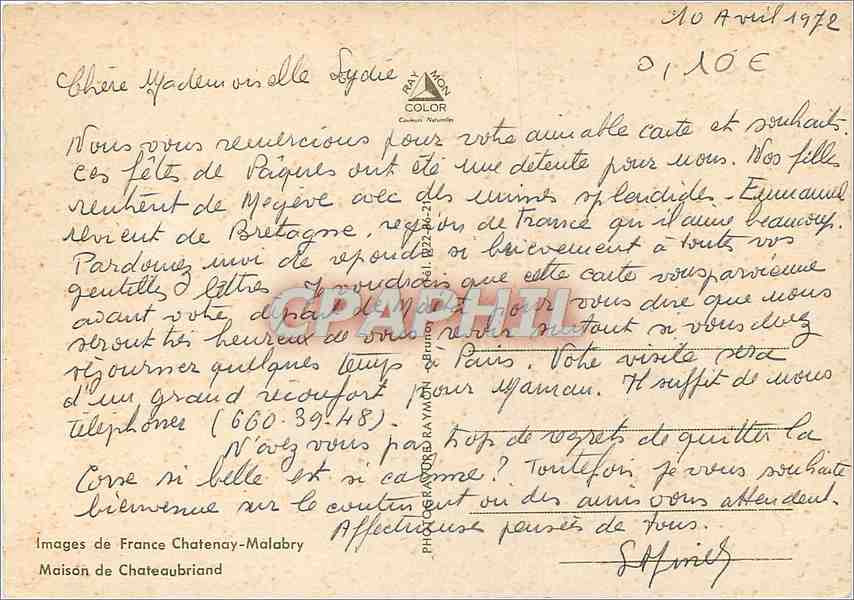 10 Avril 1972
0,10 €
Chère Mademoiselle Lydie
RAY MON
COLOR
Couleurs Naturelles
Nous vous remercions pour votre aimable carte et souhaits.
Ces fêtes de Pâques ont été une détente pour nous. Nos filles
rentrent de Megève avec des mines splendides - Emmanuel
revient de Bretagne, région de France qu'il aime beaucoup.
Pardonnez moi de répondre si brièvement à toutes vos
gentilles lettres. Je voudrais que cette carte vous parvienne
avant votre départ de pour vous dire que nous
seront très heureux de vous revoir surtout si vous devez
séjourner quelques temps à Paris. Votre visite sera
d'un grand réconfort pour Maman. Il suffit de nous
téléphoner (660.39.48).
N'avez vous pas trop de regrets de quitter la
Corse si belle et si calme ? Toutefois je vous souhaite
bienvenue sur le continent ou des amis vous attendent.
Affectueuse pensées de tous.
CPAPHIL
PHOTOGRAVURE RAYMON - Brunoy
Images de France Chatenay-Malabry
Maison de Chateaubriand